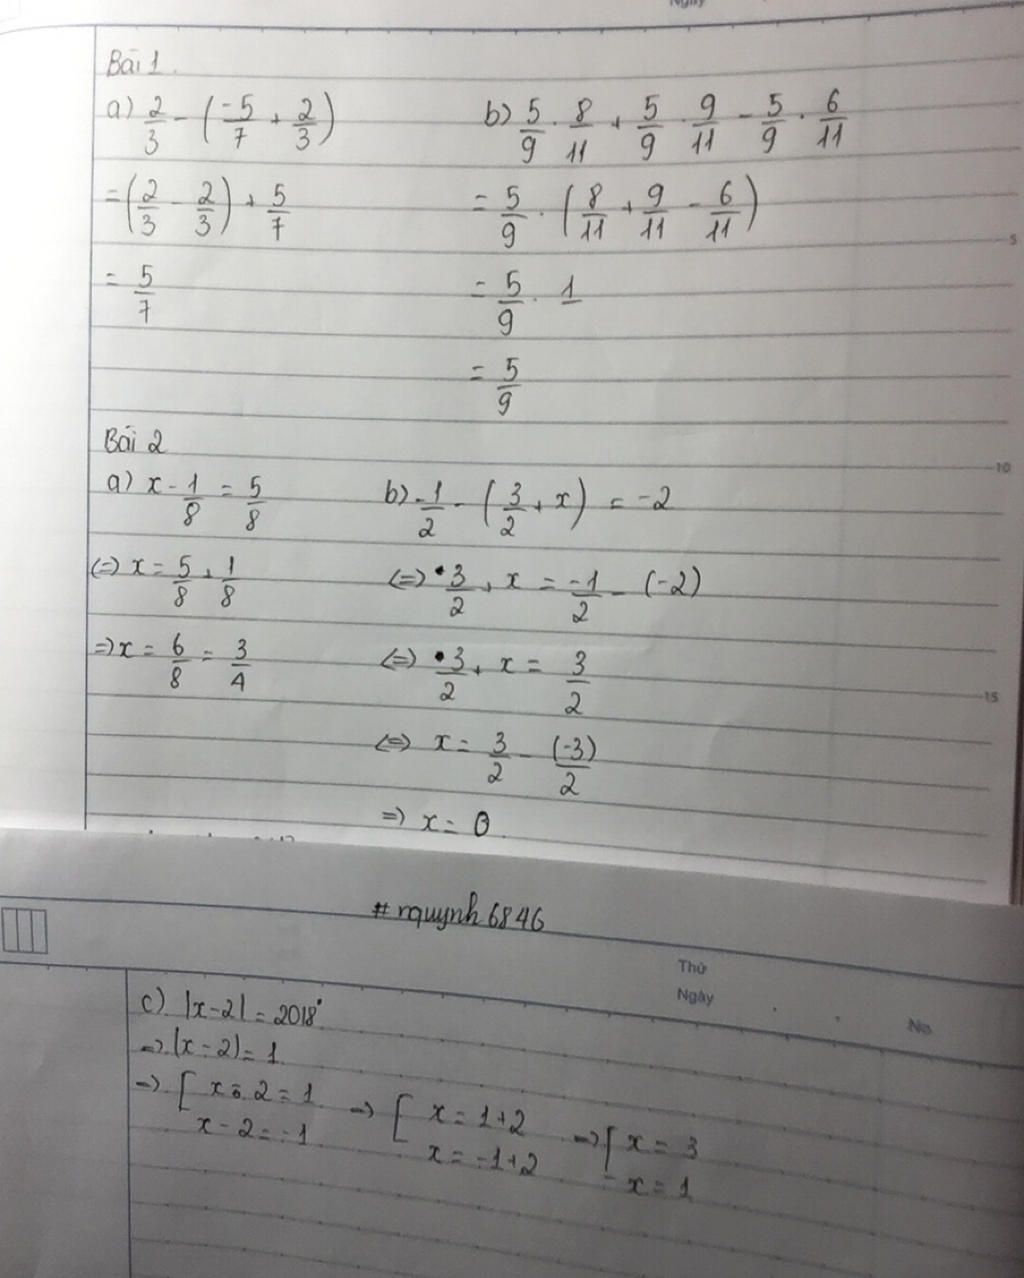 Ngày
Bài 1.
a) 2/3 - (-5/7 + 2/3)
= (2/3 - 2/3) + 5/7
= 5/7
b) 5/9 . 8/11 + 5/9 . 9/11 - 5/9 . 6/11
= 5/9 . (8/11 + 9/11 - 6/11)
= 5/9 . 1
= 5/9
5
Bài 2
a) x - 1/8 = 5/8
(=) x = 5/8 + 1/8
=) x = 6/8 = 3/4
b) -1/2 - (3/2 + x) = -2
(=) 3/2 + x = -1/2 - (-2)
(=) 3/2 + x = 3/2
(=) x = 3/2 - (-3)/2
=) x = 0
10
15
#nquynh6846
Thứ
Ngày
No
c) |x-2| = 2018°
=> |x-2| = 1
=> [ x - 2 = 1
x - 2 = -1
=> [ x = 1 + 2
x = -1 + 2
=> [ x = 3
x = 1